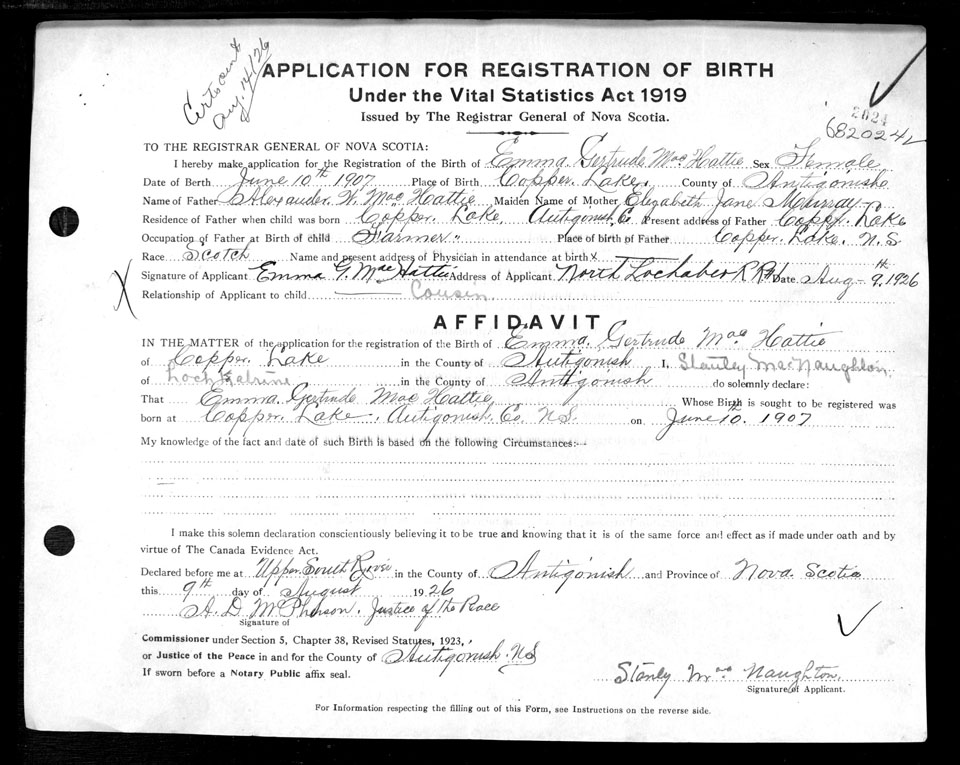 Certs sent
Aug. 14/26
APPLICATION FOR REGISTRATION OF BIRTH
Under the Vital Statistics Act 1919
Issued by The Registrar General of Nova Scotia.
2024
TO THE REGISTRAR GENERAL OF NOVA SCOTIA:
I hereby make application for the Registration of the Birth of Emma Gertrude MacHattie Sex Female
Date of Berth June 10th 1907 Place of Birth Copper Lake, County of Antigonish
Name of Father Alexander W. MacHattie Maiden Name of Mother Elizabeth Jane
Residence of Father when child was born Copper Lake, Antigonish Co Present address of Father Copper Lake
Occupation of Father at Birth of child Farmer Place of birth of Father Copper Lake, N.S
Race Scotch Name and present address of Physician in attendance at birth x
X Signature of Applicant Emma G. MacHattie Address of Applicant North Lochaber R R Date Aug - 9th, 1926
Relationship of Applicant to child Cousin
AFFIDAVIT
IN THE MATTER of the application for the registration of the Birth of Emma Gertrude Mac Hattie
of Copper Lake in the County of Antigonish I, Stanley MacNaughton
of Loch Katrine in the County of Antigonish do solemnly declare:
That Emma Gertrude Mac Hattie Whose Birth is sought to be registered was
born at Copper Lake, Antigonish Co. N.S. on June 10th. 1907
My knowledge of the fact and date of such Birth is based on the following Circumstances:—
I make this solemn declaration conscientiously believing it to be true and knowing that it is of the same force and effect as if made under oath and by
virtue of The Canada Evidence Act.
Declared before me at Upper South River in the County of Antigonish and Province of Nova Scotia
this 9th day of August 1926
A. D. McPherson. Justice of the Peace
Signature of
Commissioner under Section 5, Chapter 38, Revised Statutes, 1923,
or Justice of the Peace in and for the County of Antigonish. N.S
If sworn before a Notary Public affix seal.
Stanley Mac Naughton.
Signature of Applicant.
For Information respecting the filling out of this Form, see Instructions on the reverse side.